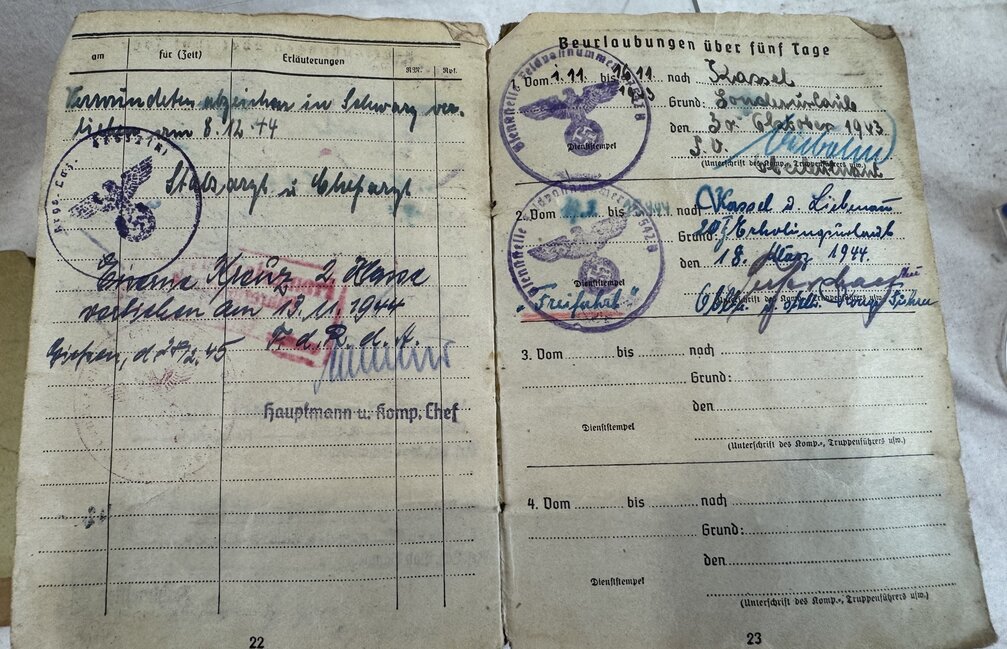 am für (Zeit) Erläuterungen RM. Rpf.
Verwundetenabzeichen in Schwarz ver-
liehen am 8.12.44
Stabsarzt u Chefarzt
Eiserne Kreuz 2. Klasse
verliehen am 13.11.1944
Gießen, d. 2.45 F. d. R. d. A.
Hauptmann u. Komp. Chef
22
Beurlaubungen über fünf Tage
Vom 1.11 bis 11 nach Kassel
1943
Grund: Sonderurlaub
den 30. Oktober 1943
Dienststempel
(Unterschrift des Komp.-, Truppenführers usw.)
Dienststelle Feldpostnummer
2. Vom bis 1944 nach Kassel u. Liebenau
Grund: Erholungsurlaub
den 18. März 1944.
Dienststempel
"Freifahrt"
Dienststelle Feldpostnummer
3. Vom bis nach
Grund:
den
Dienststempel
(Unterschrift des Komp.-, Truppenführers usw.)
4. Vom bis nach
Grund:
den
Dienststempel
(Unterschrift des Komp.-, Truppenführers usw.)
23